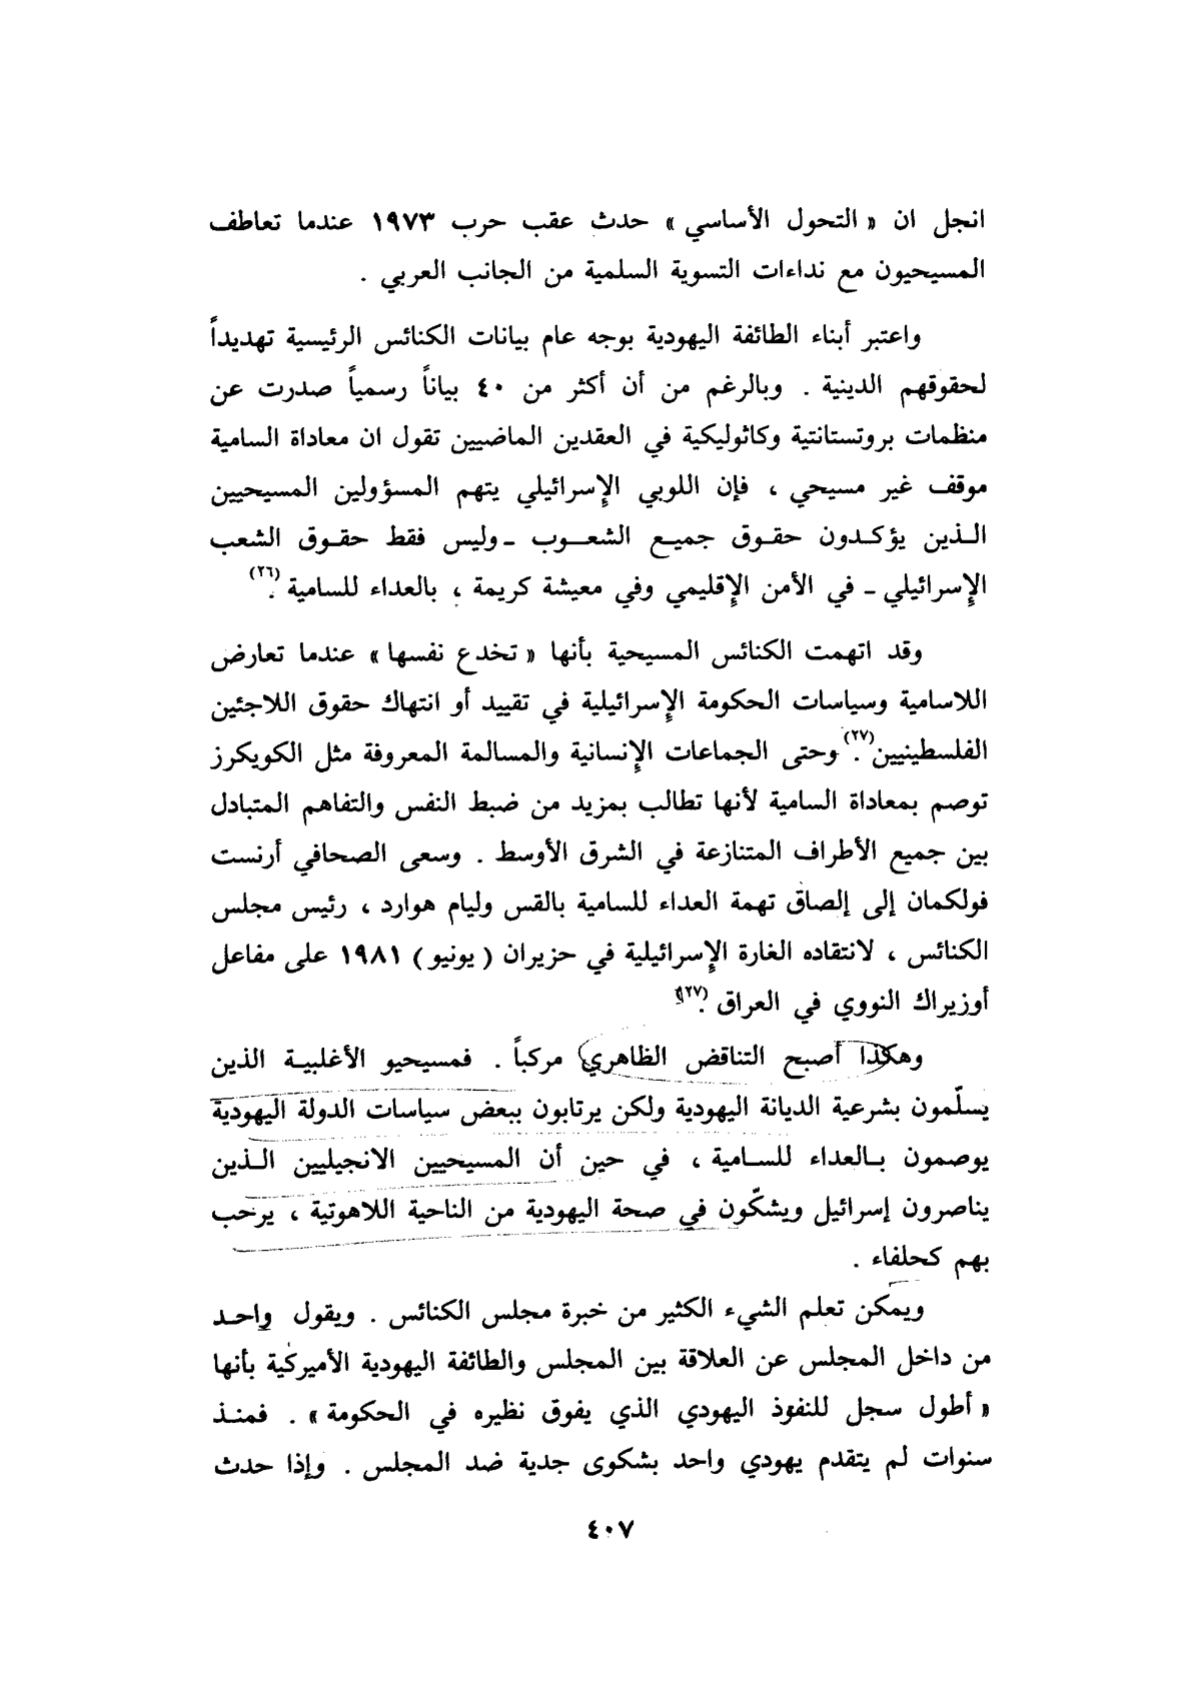 انجل ان « التحول الأساسي » حدث عقب حرب ١٩٧٣ عندما تعاطف
المسيحيون مع نداءات التسوية السلمية من الجانب العربي .
واعتبر أبناء الطائفة اليهودية بوجه عام بيانات الكنائس الرئيسية تهديداً
لحقوقهم الدينية . وبالرغم من أن أكثر من ٤٠ بياناً رسمياً صدرت عن
منظمات بروتستانتية وكاثوليكية في العقدين الماضيين تقول ان معاداة السامية
موقف غير مسيحي ، فإن اللوبي الإسرائيلي يتهم المسؤولين المسيحيين
الـذين يؤكـدون حقـوق جميـع الشعـوب ـ وليس فقط حقـوق الشعب
الإسرائيلي ـ في الأمن الإقليمي وفي معيشة كريمة ، بالعداء للسامية .(٢٦)
وقد اتهمت الكنائس المسيحية بأنها « تخدع نفسها » عندما تعارض
اللاسامية وسياسات الحكومة الإسرائيلية في تقييد أو انتهاك حقوق اللاجئين
الفلسطينيين .(٢٧) وحتى الجماعات الإنسانية والمسالمة المعروفة مثل الكويكرز
توصم بمعاداة السامية لأنها تطالب بمزيد من ضبط النفس والتفاهم المتبادل
بين جميع الأطراف المتنازعة في الشرق الأوسط . وسعى الصحافي أرنست
فولكمان إلى إلصاق تهمة العداء للسامية بالقس وليام هوارد ، رئيس مجلس
الكنائس ، لانتقاده الغارة الإسرائيلية في حزيران ( يونيو ) ١٩٨١ على مفاعل
أوزيراك النووي في العراق .(٢٧)
وهكذا أصبح التناقض الظاهري مركباً . فمسيحيو الأغلبيـة الذين
يسلّمون بشرعية الديانة اليهودية ولكن يرتابون ببعض سياسات الدولة اليهودية
يوصمون بـالعداء للسـامية ، في حين أن المسيحيين الانجيليين الـذين
يناصرون إسرائيل ويشكّون في صحة اليهودية من الناحية اللاهوتية ، يرحب
بهم كحلفاء .
ويمكن تعلم الشيء الكثير من خبرة مجلس الكنائس . ويقول واحـد
من داخل المجلس عن العلاقة بين المجلس والطائفة اليهودية الأميركية بأنها
« أطول سجل للنفوذ اليهودي الذي يفوق نظيره في الحكومة » . فمنـذ
سنوات لم يتقدم يهودي واحد بشكوى جدية ضد المجلس . وإذا حدث
٤٠٧